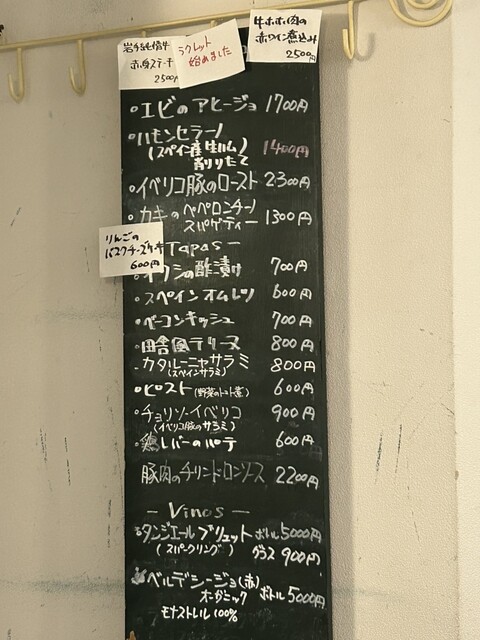 岩手短角牛
赤身ステーキ
2500円
ラクレット
始めました
牛ホホ肉の
赤ワイン煮込み
2500円
エビのアヒージョ 1700円
ハモンセラーノ
(スペイン産生ハム) 1400円
削りたて
イベリコ豚のロースト 2300円
カキのペペロンチーノ
スパゲティー 1300円
りんごの
バスクチーズケーキ
600円
Tapas -
イワシの酢漬け 700円
スペインオムレツ 600円
ベーコンキッシュ 700円
田舎風テリーヌ 800円
カタルーニャサラミ 800円
(スペインサラミ)
ピスト (野菜のトマト煮) 600円
チョリソーイベリコ 900円
(イベリコ豚のサラミ)
鶏レバーのパテ 600円
豚肉のチリンドロンソース 2200円
- Vinos -
タンジエール ブリュット ボトル 5000円
(スパークリング) グラス 900円
ベルデシージョ(赤)
オーガニック ボトル 5000円
モナストレル 100%